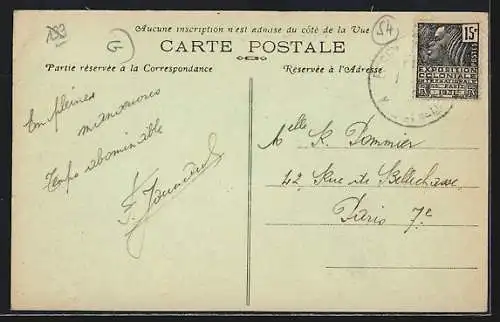 Aucune inscription n'est admise du côté de la Vue
CARTE POSTALE
Partie réservée à la Correspondance
Réservée à l'Adresse
G
54
15c
POSTES
EXPOSITION
COLONIALE
INTERNATIONALE
PARIS
1931
En pleines
manœuvres
Temps abominable
Melle K. Pommier
42, Rue de Bellechasse
Paris 7e